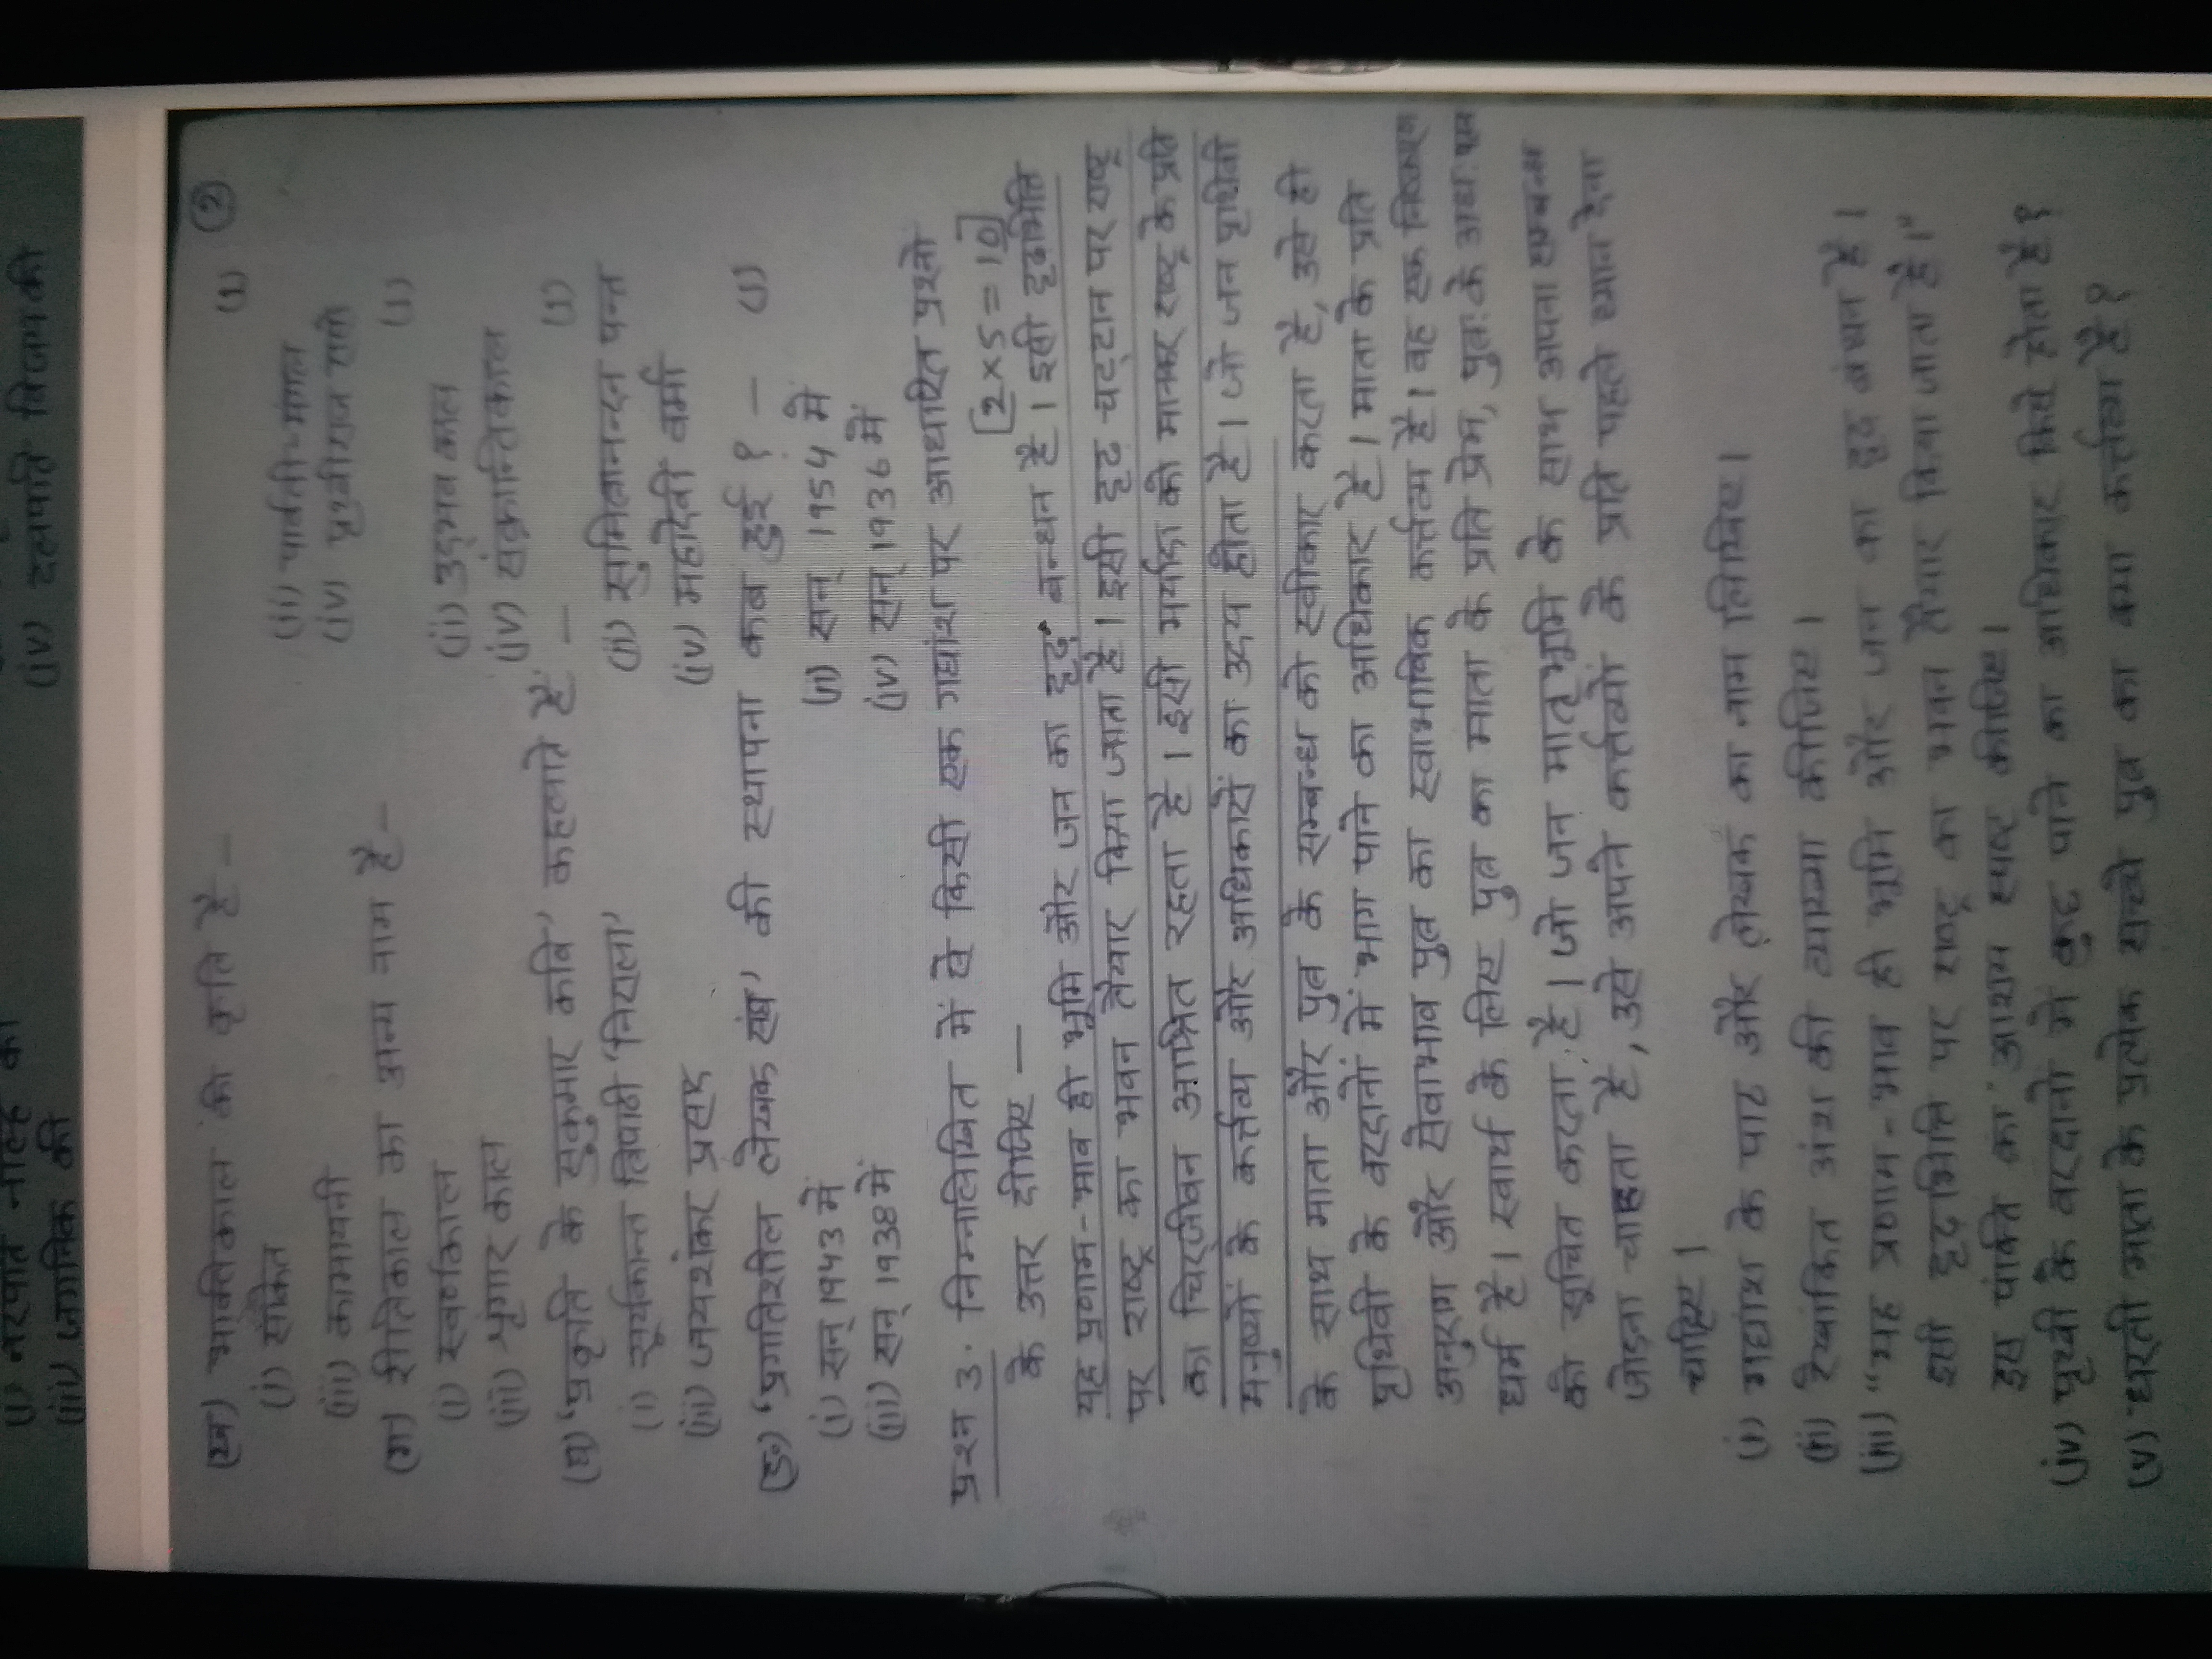 (i) नरपति नाल्ह की
(iii) जगनिक की (iv) दलपति विजय की
(2)
(ख) भक्तिकाल की कृति है – (1)
(i) साकेत (ii) पार्वती-मंगल
(iii) कामायनी (iv) पृथ्वीराज रासो
(ग) रीतिकाल का अन्य नाम है – (1)
(i) स्वर्णकाल (ii) उद्‌भव काल
(iii) श्रृंगार काल (iv) संक्रान्तिकाल
(घ) 'प्रकृति के सुकुमार कवि' कहलाते हैं – (1)
(i) सूर्यकान्त त्रिपाठी 'निराला' (ii) सुमित्रानन्दन पन्त
(iii) जयशंकर प्रसाद (iv) महादेवी वर्मा
(ड॰) 'प्रगतिशील लेखक संघ' की स्थापना कब हुई ? – (1)
(i) सन् 1943 में (ii) सन् 1954 में
(iii) सन् 1938 में (iv) सन् 1936 में
प्रश्न 3. निम्नलिखित में से किसी एक गद्यांश पर आधारित प्रश्नो
के उत्तर दीजिए – [2×5=10]
यह प्रणाम-भाव ही भूमि और जन का दृढ़ बन्धन है। इसी दृढ़भित्ति
पर राष्ट्र का भवन तैयार किया जाता है। इसी दृढ़ चट्टान पर राष्ट्र
का चिरजीवन आश्रित रहता है। इसी मर्यादा को मानकर राष्ट्र के प्रति
मनुष्यों के कर्त्तव्य और अधिकारों का उदय होता है। जो जन पृथिवी
के साथ माता और पुत्र के सम्बन्ध को स्वीकार करता है, उसे ही
पृथिवी के वरदानों में भाग पाने का अधिकार है। माता के प्रति
अनुराग और सेवाभाव पुत्र का स्वाभाविक कर्त्तव्य है। वह एक निष्कारण
धर्म है। स्वार्थ के लिए पुत्र का माता के प्रति प्रेम, पुत्र के अधः पतन
को सूचित करता है। जो जन मातृभूमि के साथ अपना सम्बन्ध
जोड़ना चाहता है, उसे अपने कर्त्तव्यों के प्रति पहले ध्यान देना
चाहिए।
(i) गद्यांश के पाठ और लेखक का नाम लिखिए।
(ii) रेखांकित अंश की व्याख्या कीजिए।
(iii) "यह प्रणाम-भाव ही भूमि और जन का दृढ़ बंधन है।
इसी दृढ़भित्ति पर राष्ट्र का भवन तैयार किया जाता है।"
इस पंक्ति का आशय स्पष्ट कीजिए।
(iv) पृथ्वी के वरदानो में कुछ पाने का अधिकार किसे होता है ?
(v) धरती माता के प्रत्येक सच्चे पुत्र का क्या कर्त्तव्य है ?